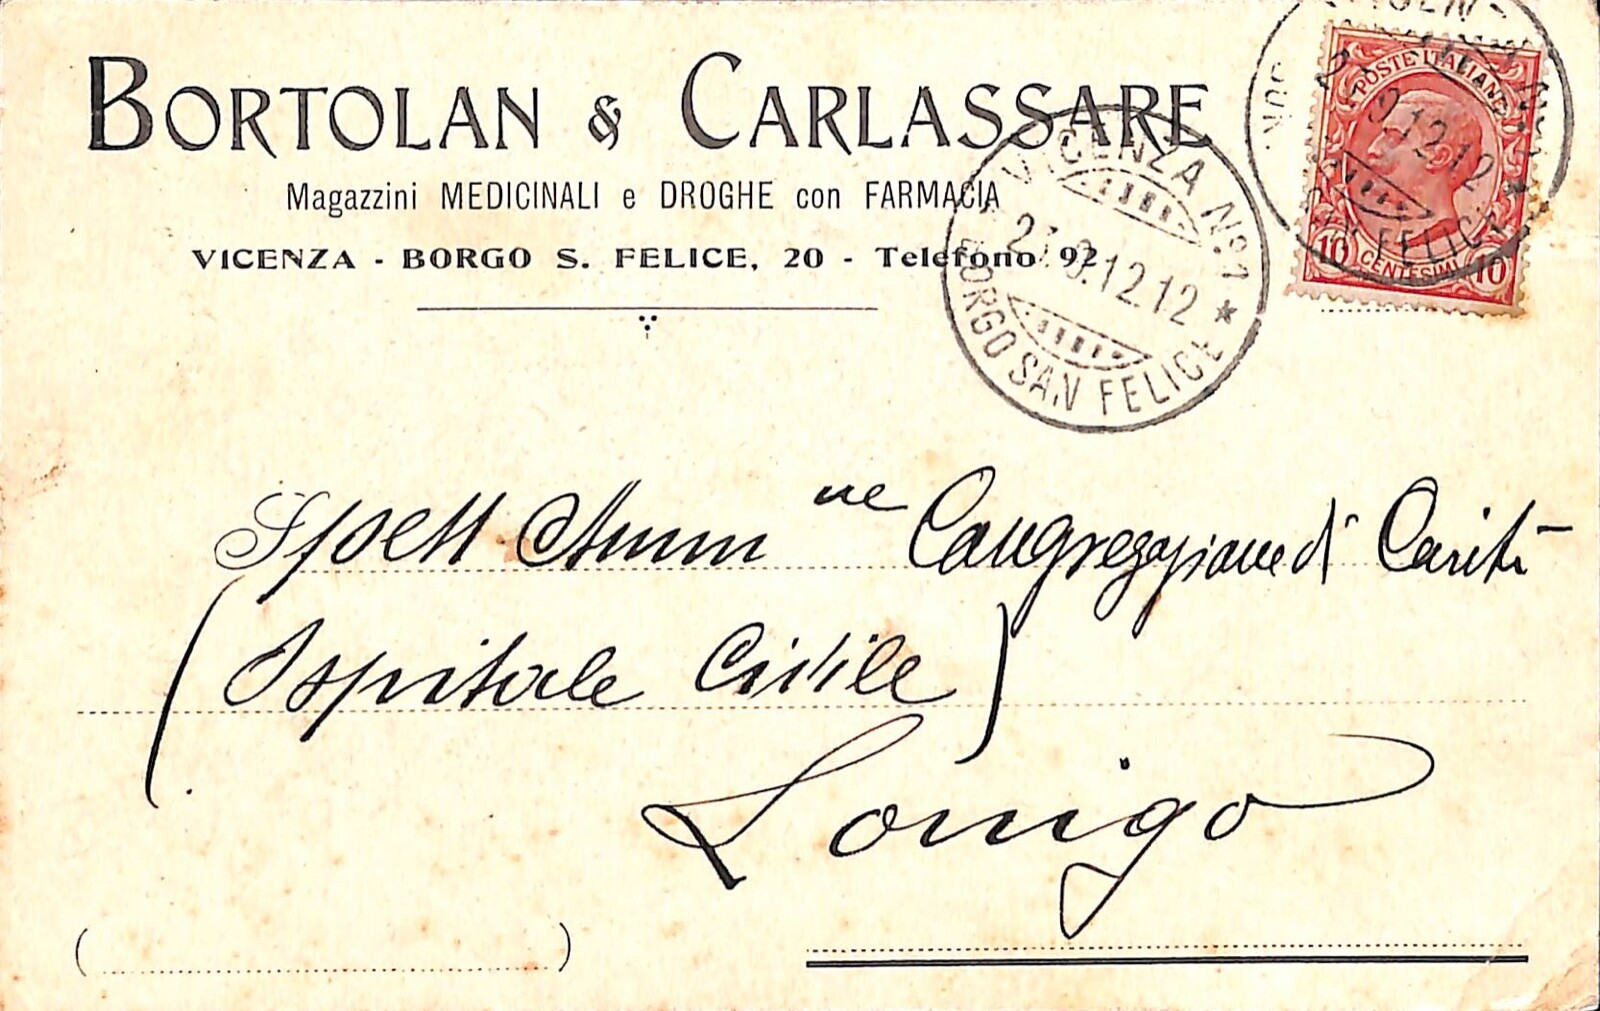 BORTOLAN & CARLASSARE
Magazzini MEDICINALI e DROGHE con FARMACIA
VICENZA - BORGO S. FELICE, 20 - Telefono 92
POSTE ITALIANE
10 CENTESIMI 10
VICENZA Nº1
12.12
BORGO SAN FELICE
12.12
FELICE
Spett Amm ne Congregazione di Carità
(Ospitale Civile)
Lonigo
( )